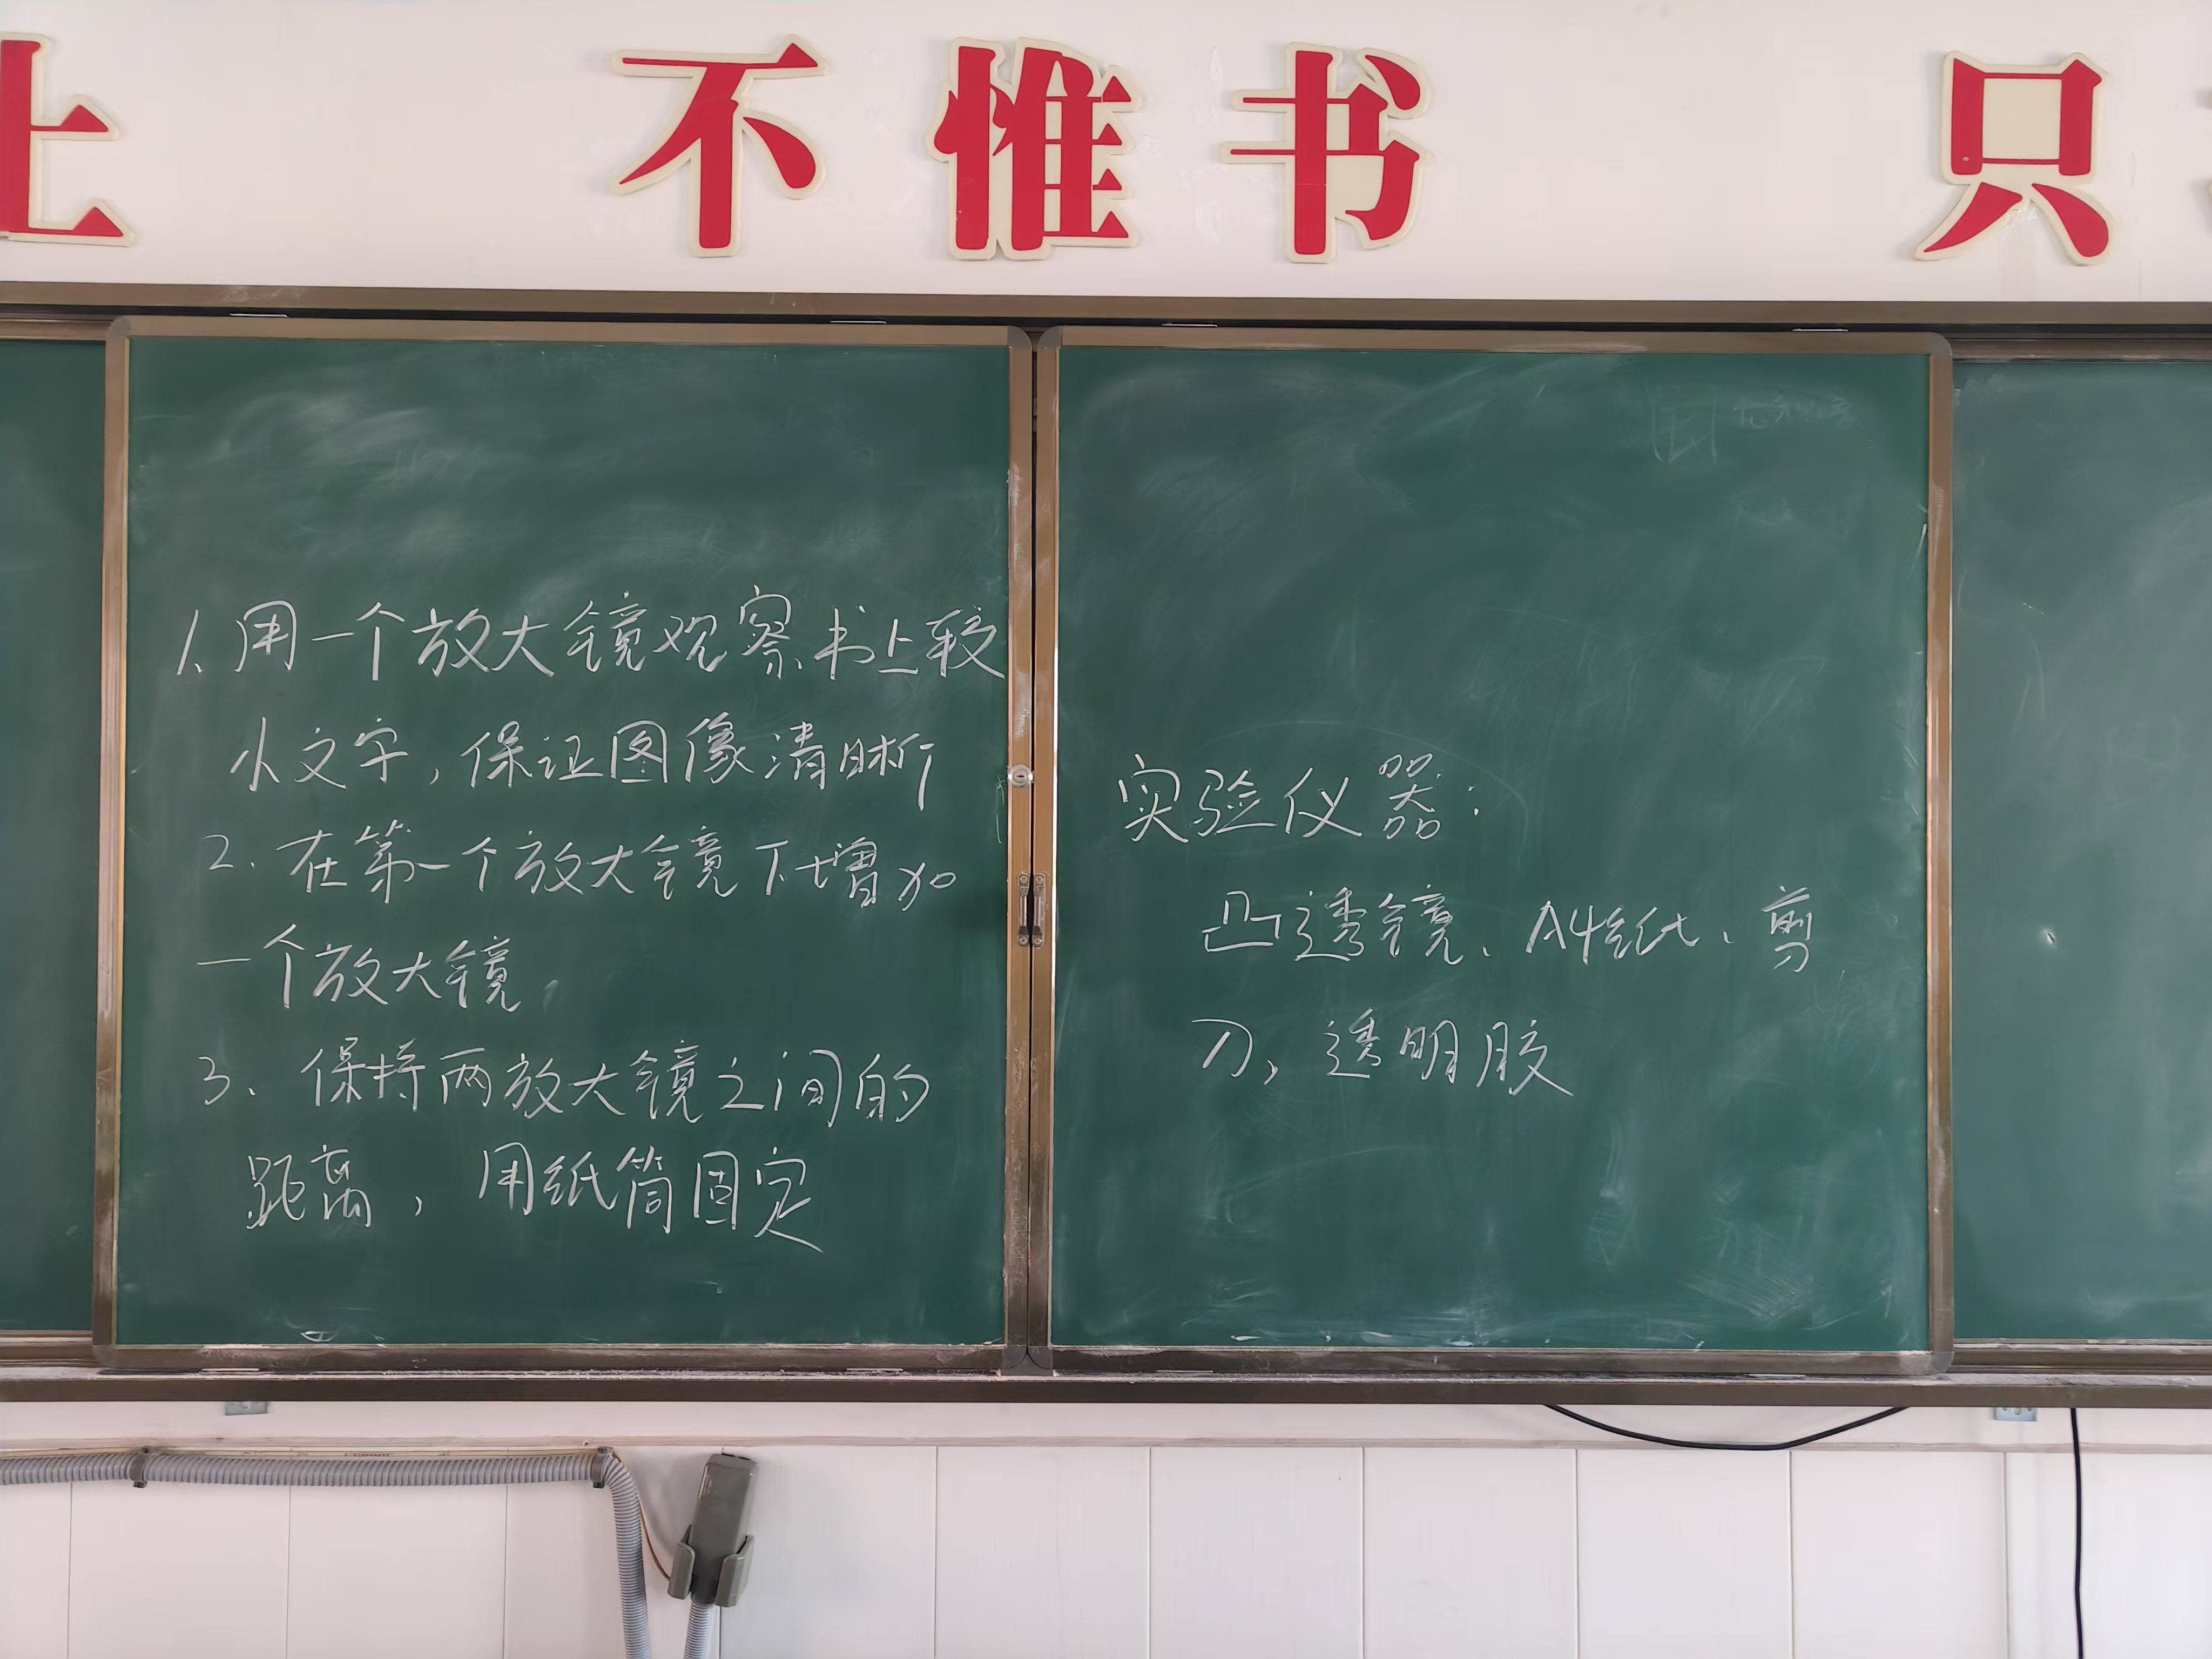 上 不惟书 只
1、用一个放大镜观察书上较
小文字，保证图像清晰
2.在第一个放大镜下增加
一个放大镜.
3、保持两放大镜之间的
距离，用纸筒固定
实验仪器：
凸透镜、A4纸、剪
刀、透明胶